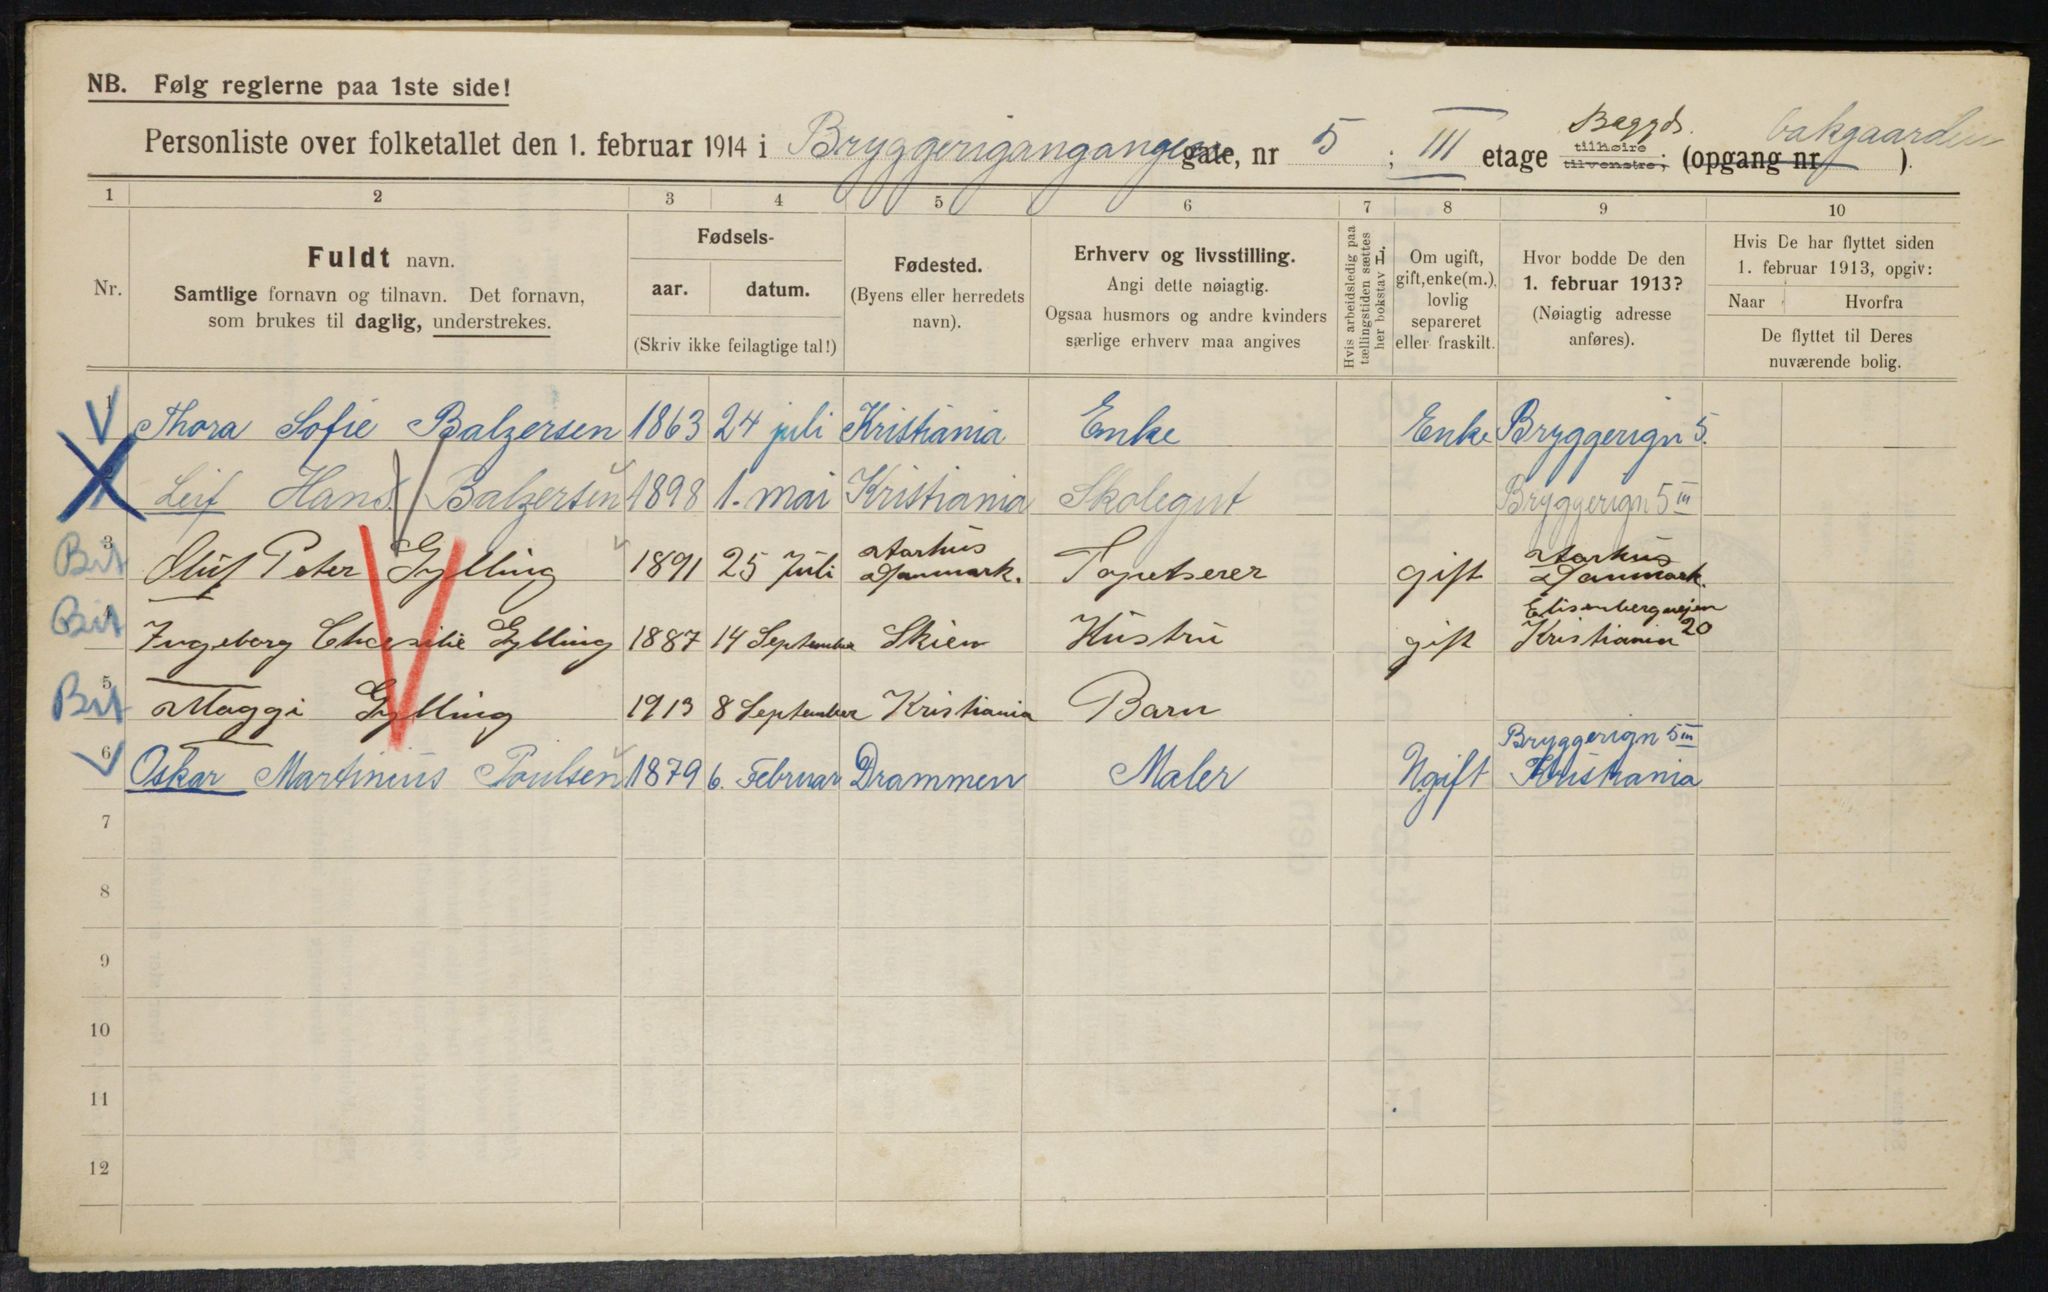 NB. Følg reglerne paa 1ste side!
Personliste over folketallet den 1. februar 1914 i Bryggerigangangen gate, nr 5 ; III etage Baggd. tilhøire tilvenstre; (opgang nr bakgaarden ).
1 2 3 4 5 6 7 8 9 10
Nr.
Fuldt navn.
Samtlige fornavn og tilnavn. Det fornavn,
som brukes til daglig, understrekes.
Fødsels-
aar. datum.
(Skriv ikke feilagtige tal!)
Fødested.
(Byens eller herredets
navn).
Erhverv og livsstilling.
Angi dette nøiagtig.
Ogsaa husmors og andre kvinders
særlige erhverv maa angives
Hvis arbeidsledig paa
tællingstiden sættes
her bokstav L.
Om ugift,
gift, enke(m.),
lovlig
separeret
eller fraskilt.
Hvor bodde De den
1. februar 1913?
(Nøiagtig adresse
anføres).
Hvis De har flyttet siden
1. februar 1913, opgiv:
Naar Hvorfra
De flyttet til Deres
nuværende bolig.
1 Thora Sofie Balzersen 1863 24 juli Kristiania Enke Enke Bryggerign 5.
Leif Hans Balzersen 1898 1. mai Kristiania Skolegut Bryggerign 5 III
Bit 3 Oluf Peter Gylling 1891 25 Juli Aarhus Danmark. Tapetserer gift Aarhus Danmark.
Bit 4 Ingeborg Gylling 1887 14 September Skien Hustru gift Elisenbergveien 20 Kristiania
Bit 5 Maggi Gylling 1913 8 September Kristiania Barn
6 Oskar Martinius Poulsen 1879 6. Februar Drammen Maler Ugift Bryggerign 5 III Kristiania
7
8
9
10
11
12